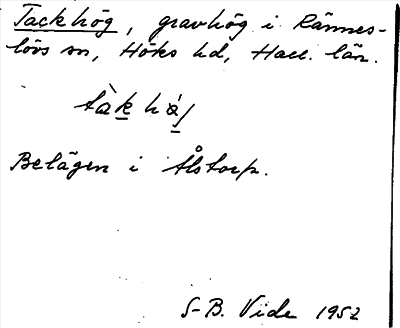 Tackhög, gravhög i Rännes-
lövs sn, Höks hd, Hall. län.
Belägen i Ålstorp.
S-B. Vide 1952